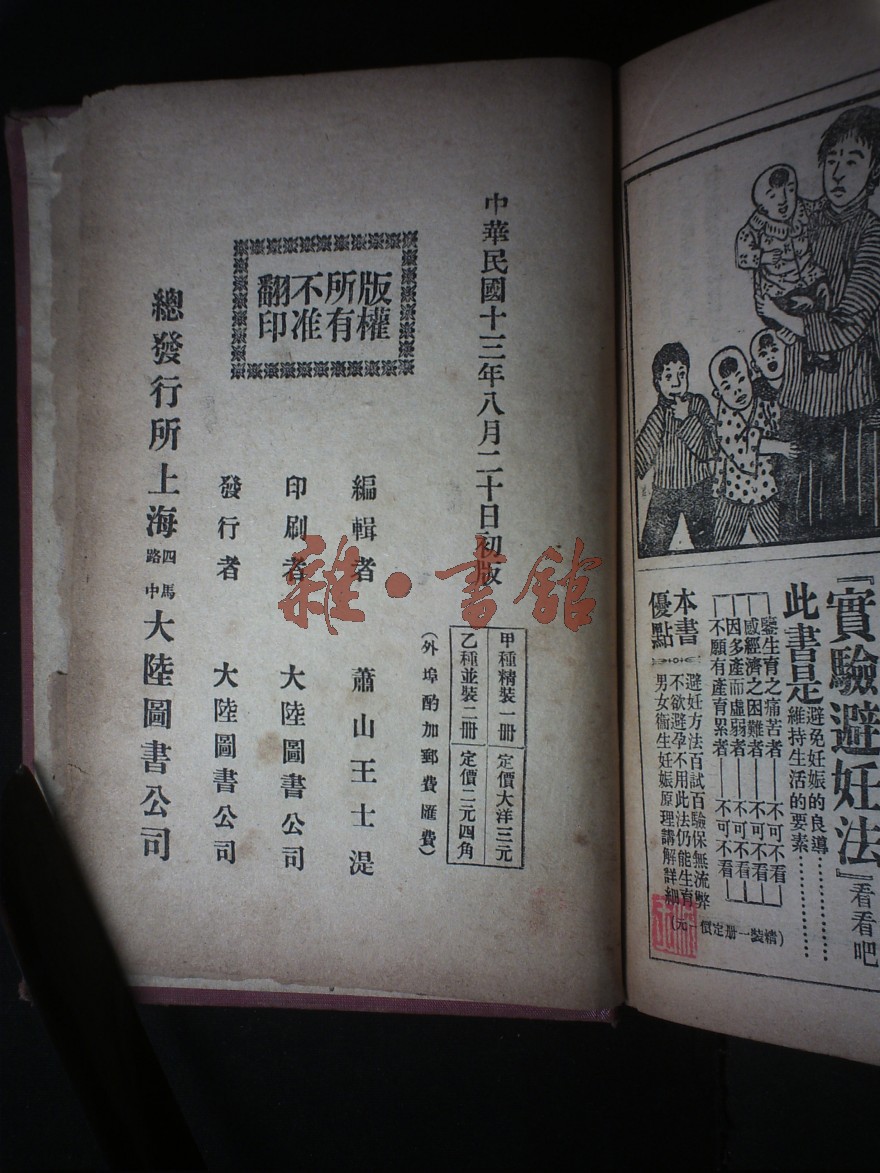 『實驗避妊法』看看吧
此書是
避免妊娠的良導………
維持生活的要素………
鑒生育之痛苦者——不可不看
感經濟之困難者——不可不看
因多產而虛弱者——不可不看
不願有產育累者——不可不看
本書優點
避妊方法百試百驗保無流弊
不欲避孕不用此法仍能生育
男女衞生妊娠原理講解詳細
(精裝一册定價一元)
中華民國十三年八月二十日初版
甲種精裝一冊 定價大洋三元
乙種並裝二冊 定價二元四角
(外埠酌加郵費匯費)
版權
所有
不准
翻印
編輯者 蕭山王士湜
印刷者 大陸圖書公司
發行者 大陸圖書公司
總發行所上海四馬路中大陸圖書公司
雜·書館